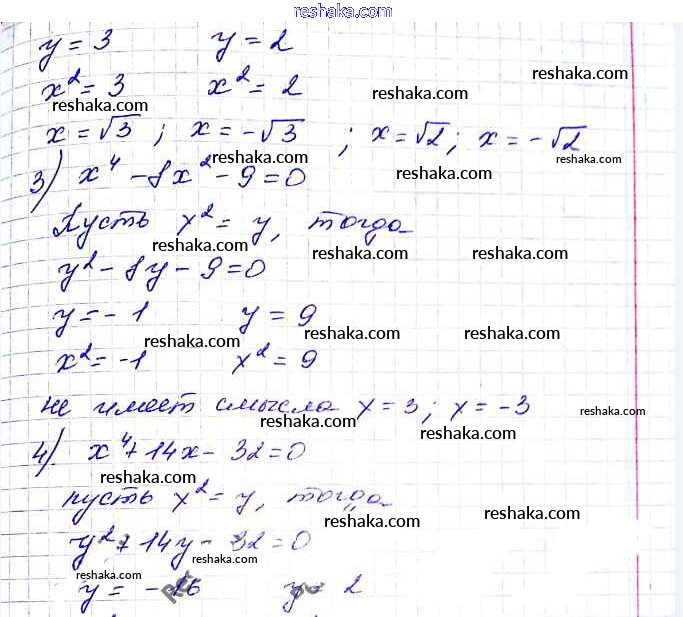 reshaka.com
y = 3 y = 2
x² = 3 x² = 2
reshaka.com
reshaka.com
reshaka.com
x = √3 ; x = -√3 ; x = √2 ; x = -√2
reshaka.com
reshaka.com
3) x⁴ - 8x² - 9 = 0
reshaka.com
Пусть x² = y, тогда
reshaka.com
reshaka.com
reshaka.com
reshaka.com
y² - 8y - 9 = 0
y = -1 y = 9
reshaka.com
reshaka.com
reshaka.com
x² = -1 x² = 9
не имеет смысла x = 3 ; x = -3
reshaka.com
reshaka.com
reshaka.com
4) x⁴ + 14x - 32 = 0
reshaka.com
пусть x² = y, тогда
reshaka.com
reshaka.com
y² + 14y - 32 = 0
reshaka.com
reshaka.com
y = -16 y = 2